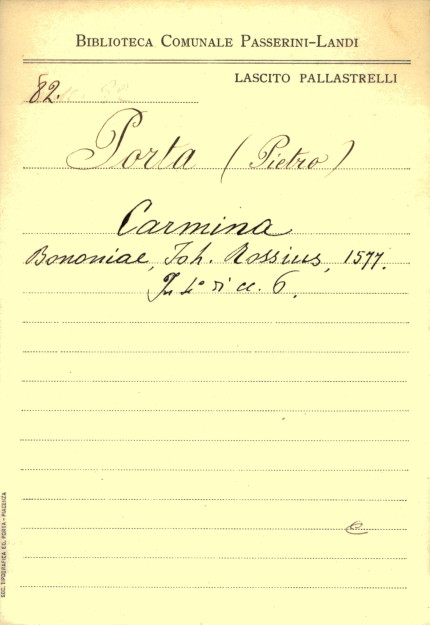 BIBLIOTECA COMUNALE PASSERINI-LANDI
LASCITO PALLASTRELLI
82.
Porta (Pietro)
Carmina
Bononiae, Joh. Rossius, 1577.
In 4° di cc. 6.
SOC. TIPOGRAFICA ED. PORTA - PIACENZA